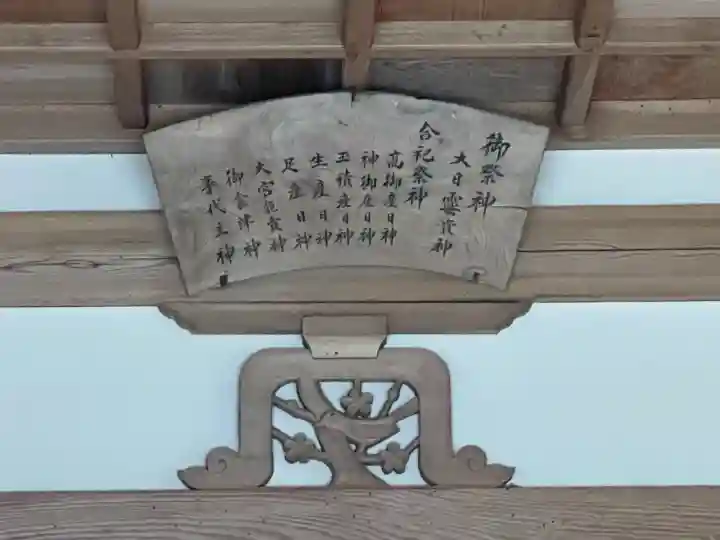 御祭神
大日孁貴神
合祀祭神
高御産日神
神御産日神
玉積産日神
生産日神
足産日神
大宮売神
御食津神
事代主神